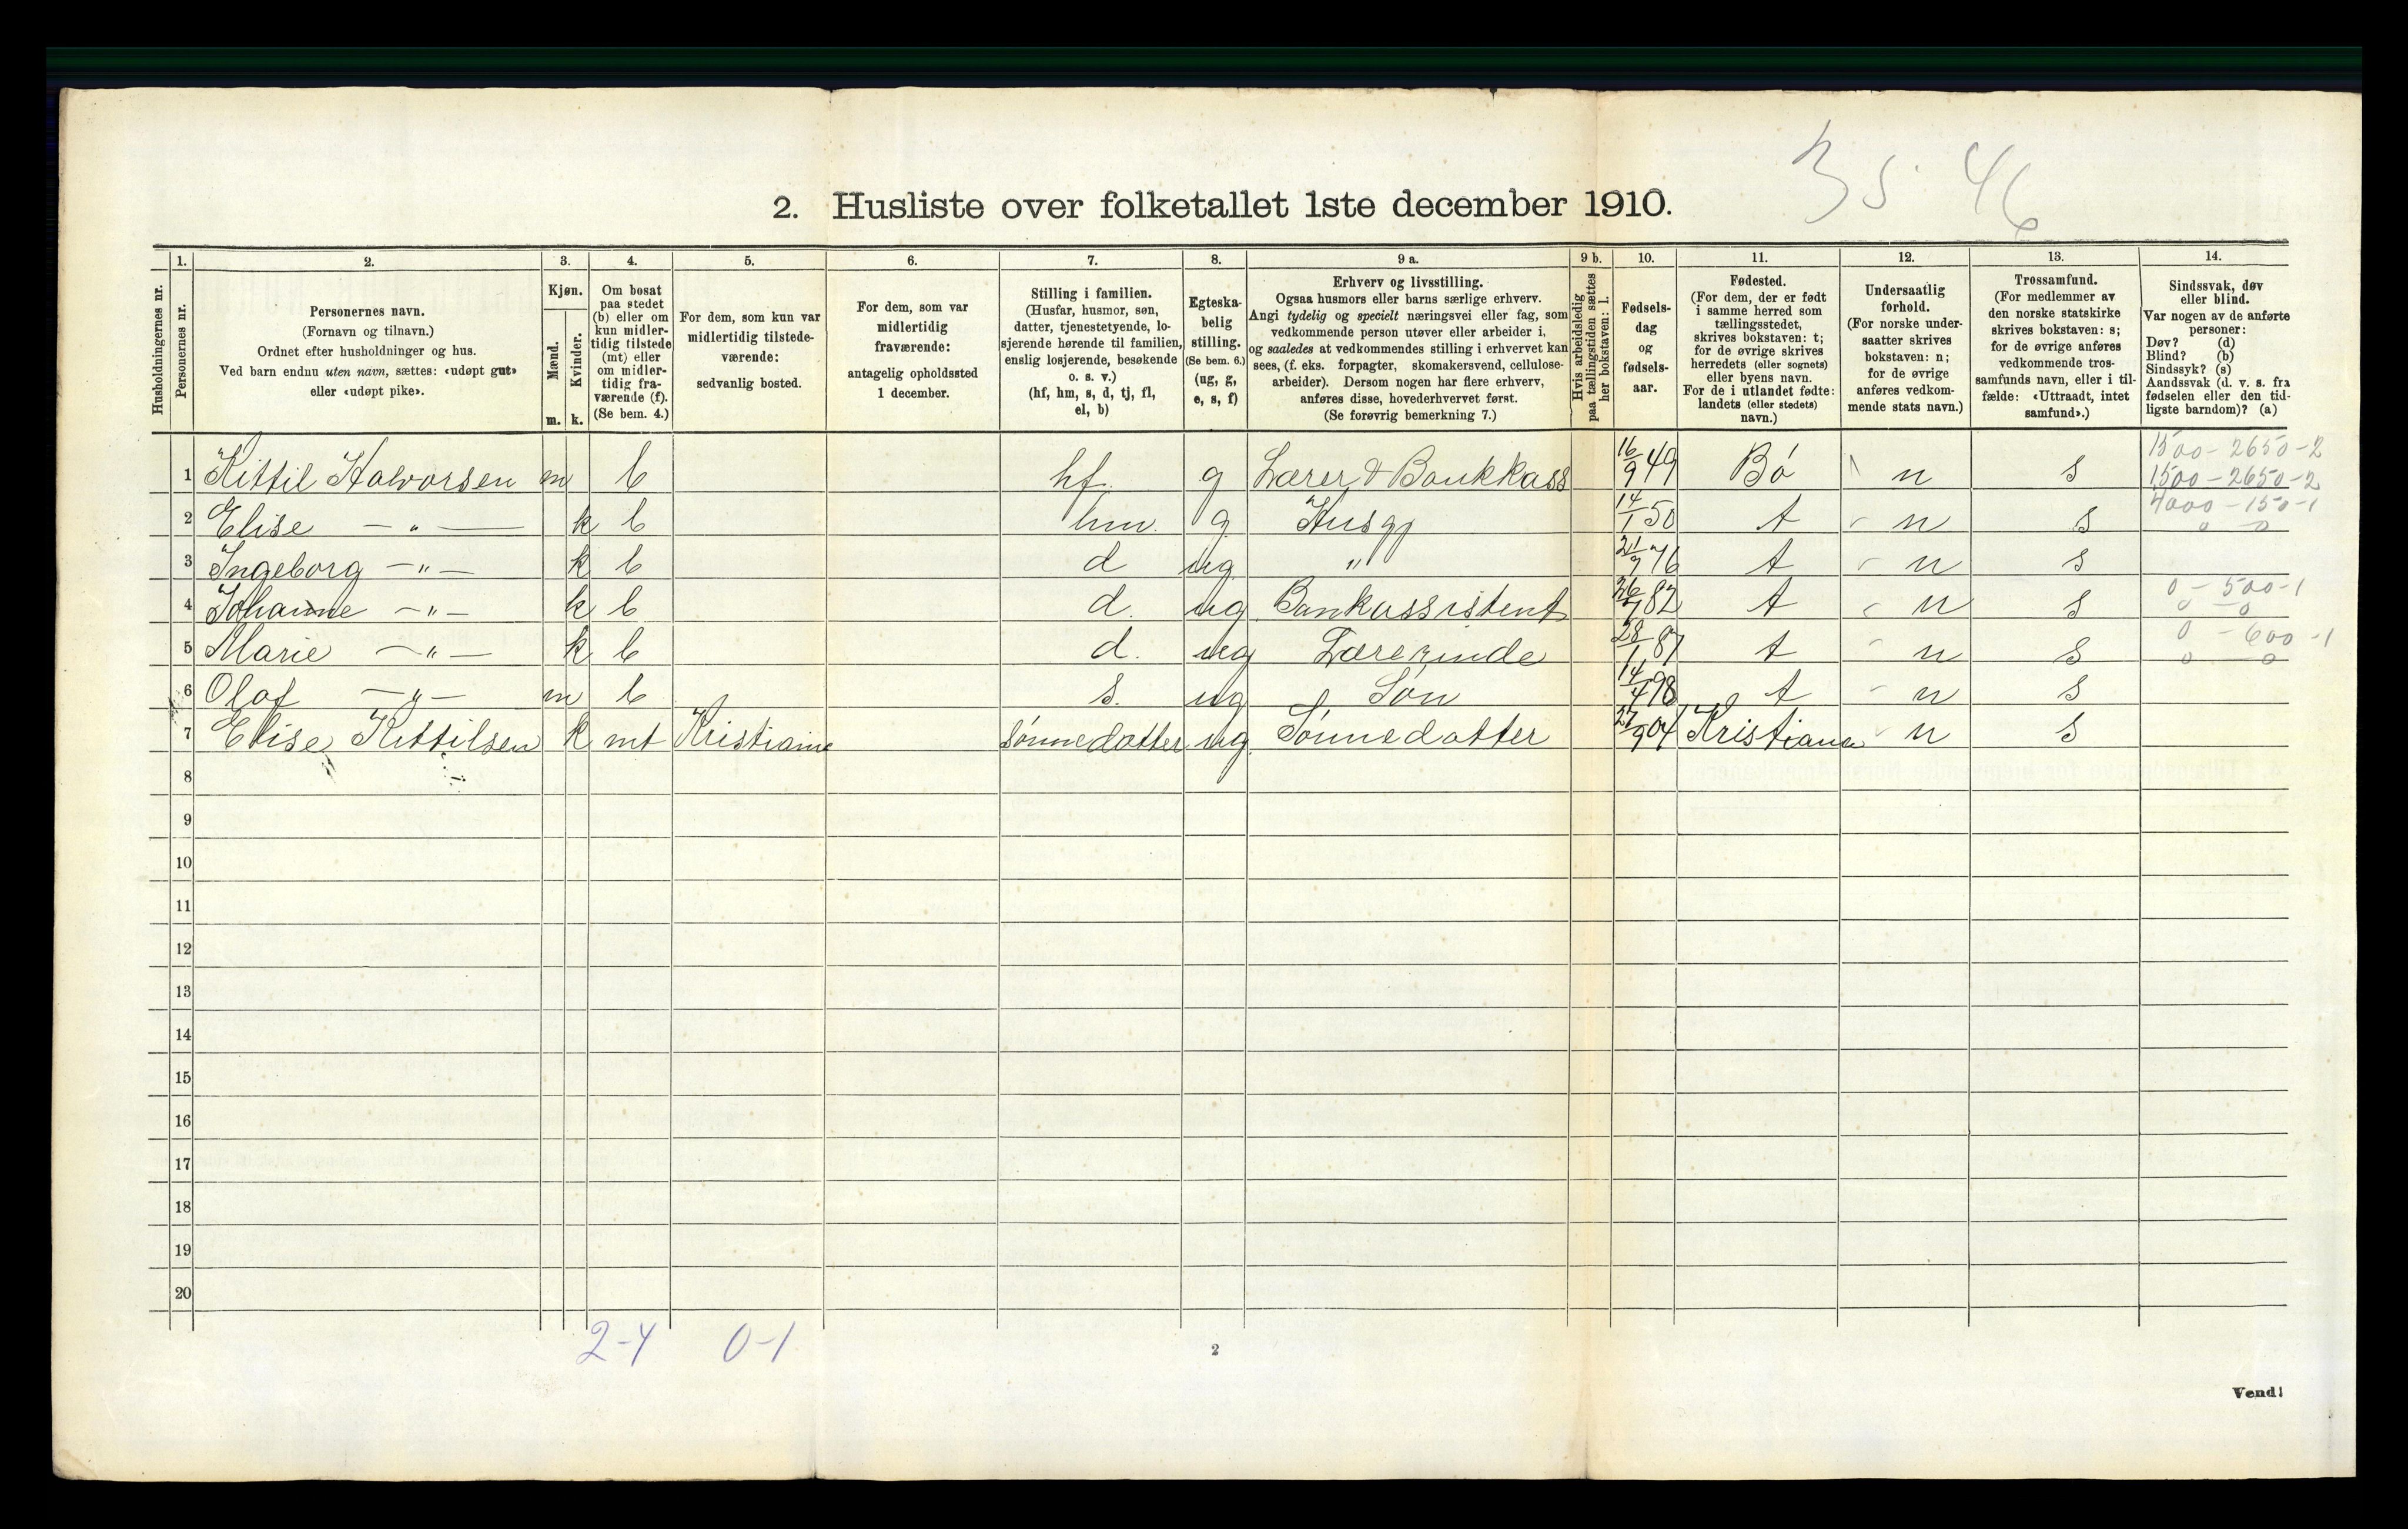 3 5 46
2. Husliste over folketallet 1ste december 1910.
Husholdningernes nr.
1.
Personernes nr.
2.
Personernes navn.
(Fornavn og tilnavn.)
Ordnet efter husholdninger og hus.
Ved barn endnu uten navn, sættes: «udøpt gut»
eller «udøpt pike».
3.
Kjøn.
Mænd.
Kvinder.
m.
k.
4.
Om bosat
paa stedet
(b) eller om
kun midler-
tidig tilstede
(mt) eller
om midler-
tidig fra-
værende (f).
(Se bem. 4.)
5.
For dem, som kun var
midlertidig tilstede-
værende:
sedvanlig bosted.
6.
For dem, som var
midlertidig
fraværende:
antagelig opholdssted
1 december.
7.
Stilling i familien.
(Husfar, husmor, søn,
datter, tjenestetyende, lo-
sjerende hørende til familien,
enslig losjerende, besøkende
o. s. v.)
(hf, hm, s, d, tj, fl,
el, b)
8.
Egteska-
belig
stilling.
(Se bem. 6.)
(ug, g,
e, s, f)
9 a.
Erhverv og livsstilling.
Ogsaa husmors eller barns særlige erhverv.
Angi tydelig og specielt næringsvei eller fag, som
vedkommende person utøver eller arbeider i,
og saaledes at vedkommendes stilling i erhvervet kan
sees, (f. eks. forpagter, skomakersvend, cellulose-
arbeider). Dersom nogen har flere erhverv,
anføres disse, hovederhvervet først.
(Se forøvrig bemerkning 7.)
9 b.
Hvis arbeidsledig
paa tællingstiden sættes
her bokstaven: l.
10.
Fødsels-
dag
og
fødsels-
aar.
11.
Fødested.
(For dem, der er født
i samme herred som
tællingsstedet,
skrives bokstaven: t;
for de øvrige skrives
herredets (eller sognets)
eller byens navn.
For de i utlandet fødte:
landets (eller stedets)
navn.)
12.
Undersaatlig
forhold.
(For norske under-
saatter skrives
bokstaven: n;
for de øvrige
anføres vedkom-
mende stats navn.)
13.
Trossamfund.
(For medlemmer av
den norske statskirke
skrives bokstaven: s;
for de øvrige anføres
vedkommende tros-
samfunds navn, eller i til-
fælde: «Uttraadt, intet
samfund».)
14.
Sindssvak, døv
eller blind.
Var nogen av de anførte
personer:
Døv? (d)
Blind? (b)
Sindssyk? (s)
Aandssvak (d. v. s. fra
fødselen eller den tid-
ligste barndom)? (a)
1500 - 2650 - 2
1 Kittil Halvorsen m b hf. g Lærer & Bankkass 16/9 49 Bø n s 1500 - 2650 - 2
4000 - 150 - 1
2 Elise — " — k b hm. g. Husgj 14/1 50 t n s 0 0
3 Ingeborg — " — k b d ug " 76 t n s
0 - 500 - 1
4 Johanne — " — k b d. ug Bankassistent 82 t n s 0 0
0 - 600 - 1
5 Marie — " — k b d. ug Lærerinde 28/1 87 t n s 0 0
6 Olaf — " — m b s. ug Søn 14/4 98 t n s
7 Elise Kittilsen k mt Kristiania sønnedatter ug Sønnedatter 27/9 04 Kristiania n s
8
9
10
11
12
13
14
15
16
17
18
19
20
2-4 0-1
2
Vend!